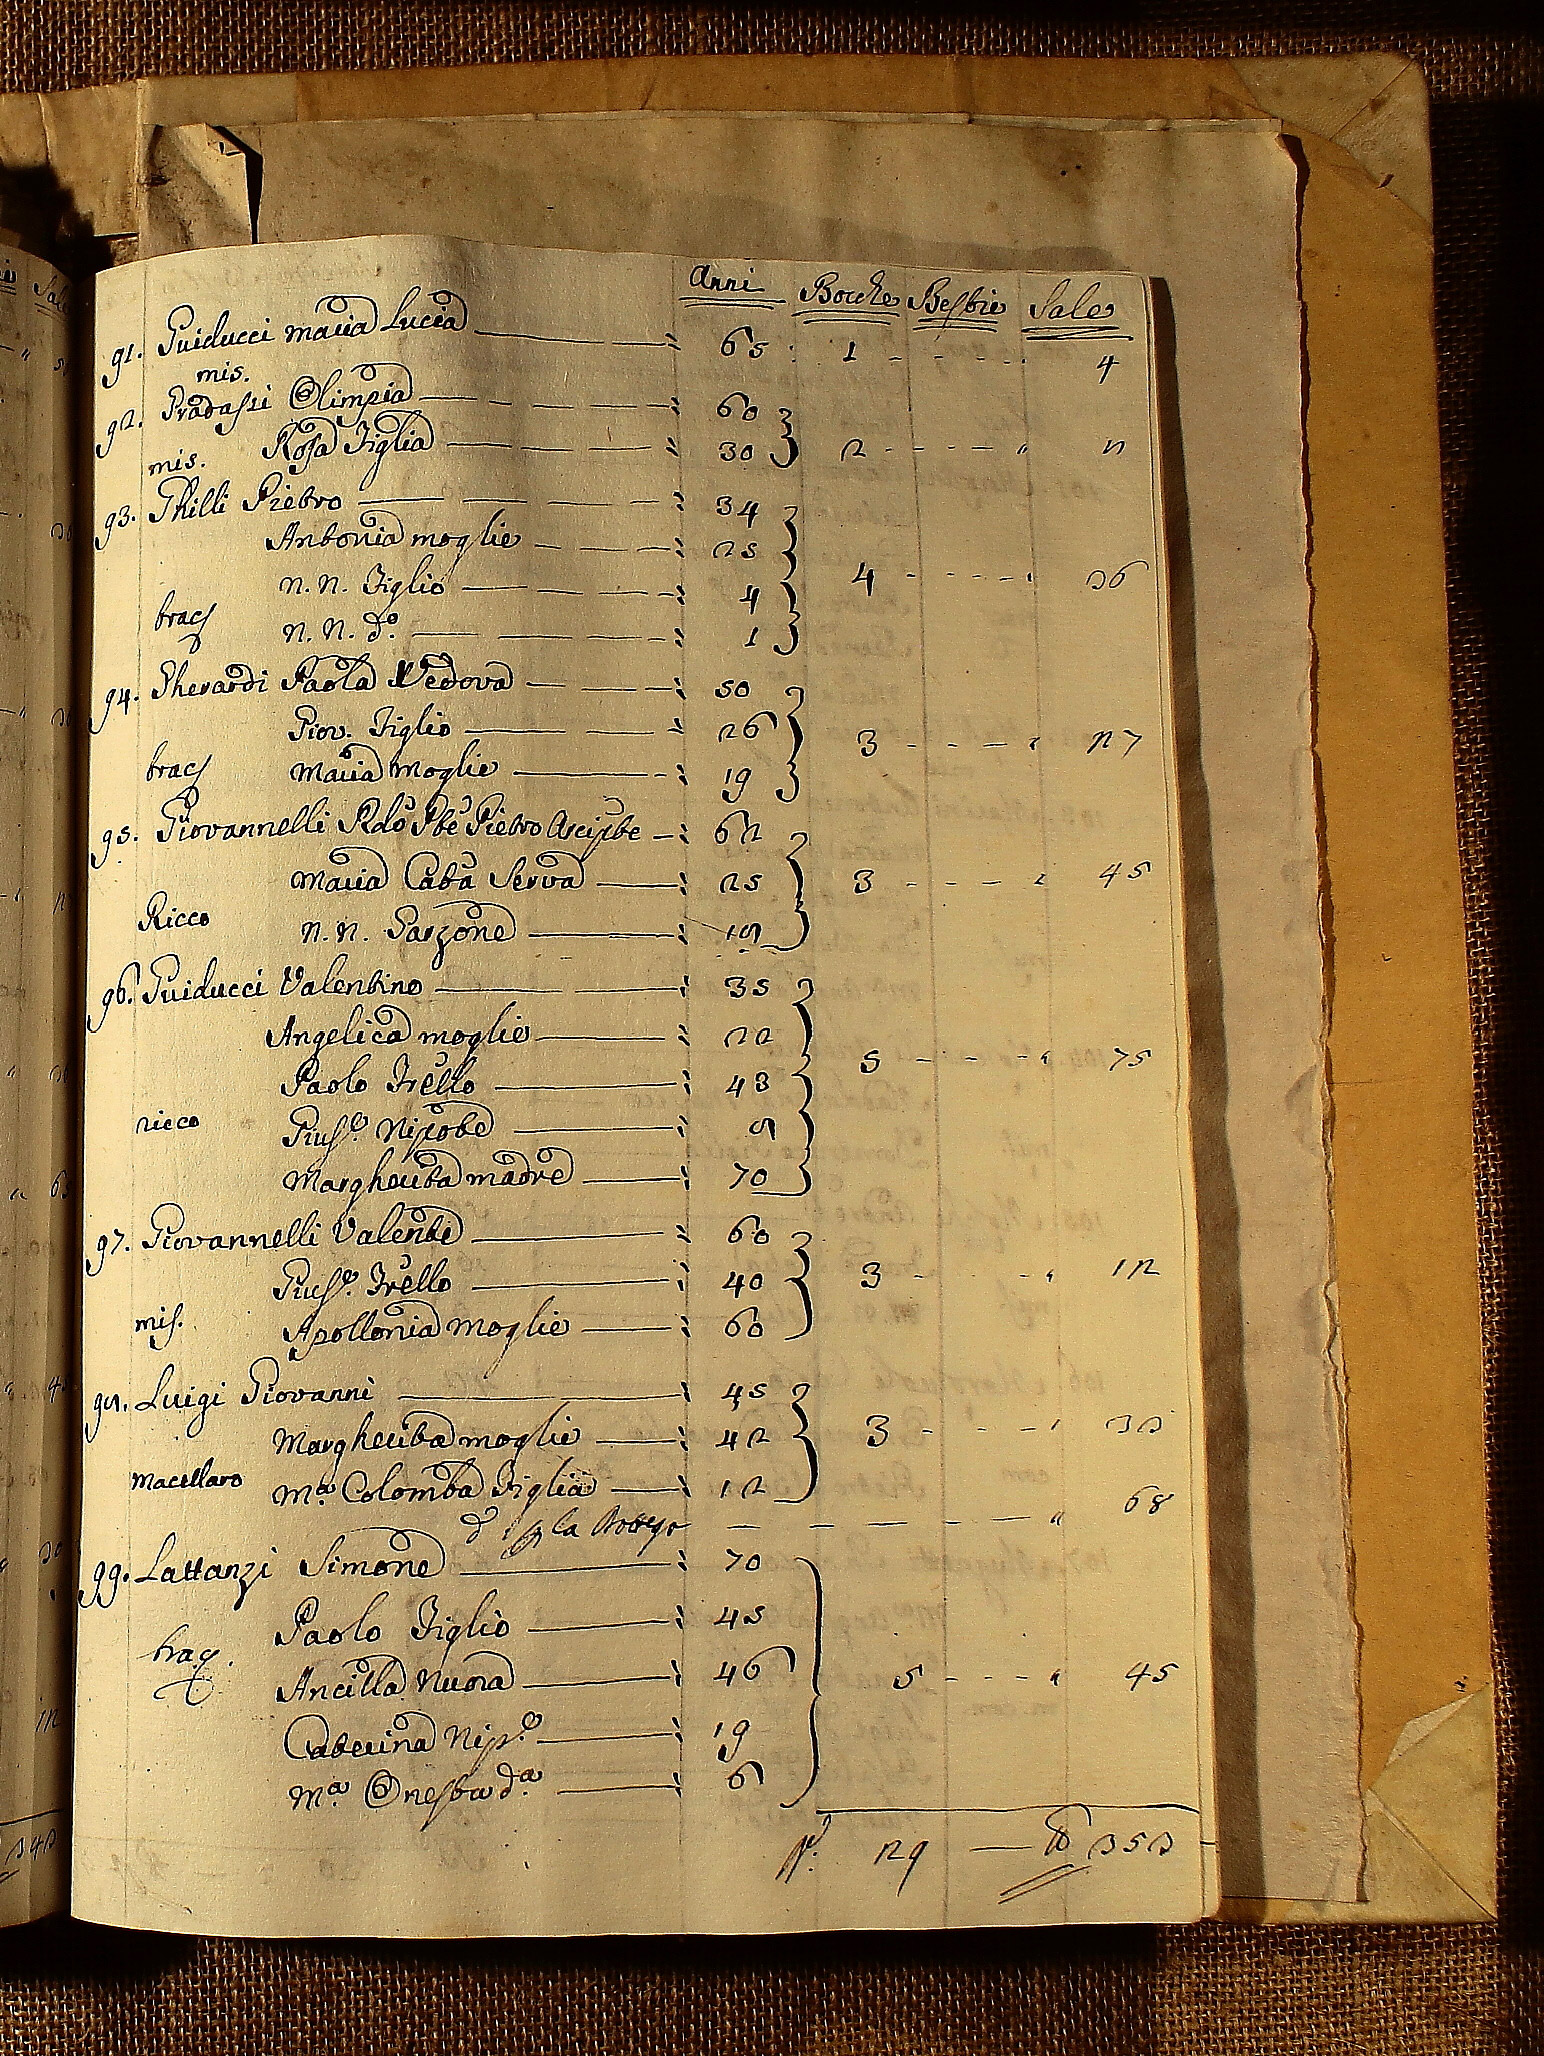 Anni Bocche Bestie Sale
91. Guiducci Maria Lucia 65 1 4
mis.
92. Gradassi Olimpia 60
Rosa Figlia 30 2 8
mis.
93. Ghilli Pietro 34
Antonia moglie 25
n. n. Figlio 4 4 36
brac
n. n. do. 1
94. Gherardi Paola Vedova 50
Giov. Figlio 26 3 27
brac Maria moglie 19
95. Giovannelli Rdo Pte Pietro Arcipte 62
Maria Cata Serva 25 3 45
Ricco n. n. Garzone 18
96. Guiducci Valentino 35
Angelica moglie 22
Paolo Frello 43 5 75
ricco Giuse. Nipote 8
Margherita madre 70
97. Giovannelli Valente 60
Giuse. Frello 40 3 12
mis. Apollonia moglie 60
98. Luigi Giovanni 45
Margherita moglie 42 3 33
Macellaro Ma. Colomba Figlia 12
d p la 68
99. Lattanzi Simone 70
Paolo Figlio 45
brac. Ancilla Nuora 46 5 45
Caterina Nipe. 19
Ma. Onesta da. 6
29 353